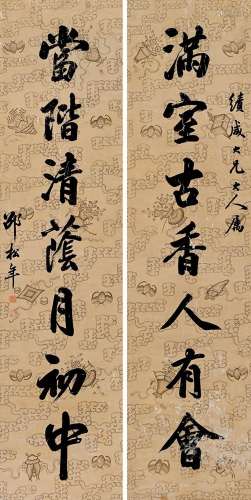 績臣大兄大人屬
滿室古香人有會
當階清蔭月初中
邵松年